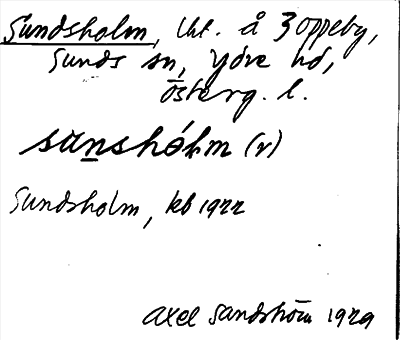 Sundsholm, lht. å Zoppeby,
Sunds sn, Ydre hd,
Österg. l.
sunshólm (v)
Sundsholm, kb 1922
Axel Sandström 1929